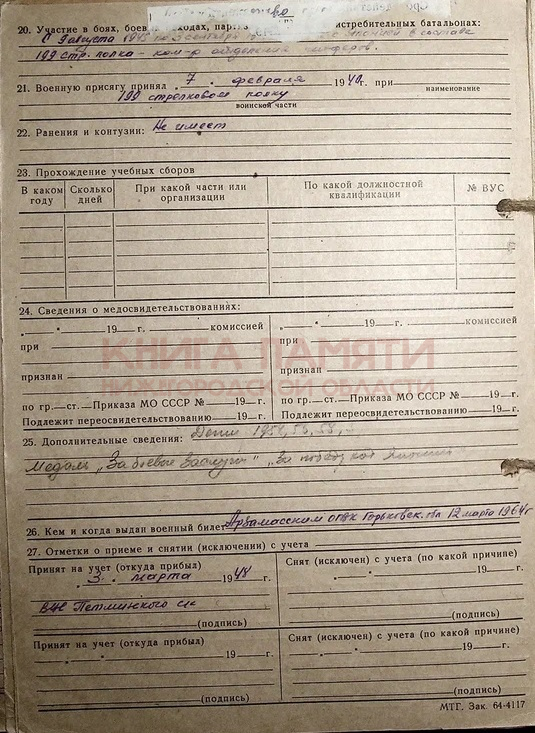 20. Участие в боях, партиз истребительных батальонах:
С 9 августа 1945 по 3 сентября с Японией в составе
199 стр. полка - ком-р отделения
21. Военную присягу принял 7 февраля 1940г. при
наименование
199 стрелковом полку
воинской части
22. Ранения и контузии: Не имеет
23. Прохождение учебных сборов
В каком году Сколько дней При какой части или организации По какой должностной квалификации № ВУС
24. Сведения о медосвидетельствованиях:
19 г. комиссией 19 г. комиссией
при при
КНИГА ПАМЯТИ
признан признан
НИЖЕГОРОДСКОЙ ОБЛАСТИ
по гр. ст. Приказа МО СССР № 19 г. по гр. ст. Приказа МО СССР № 19 г.
Подлежит переосвидетельствованию 19 г. Подлежит переосвидетельствованию 19 г.
25. Дополнительные сведения: Дети 1954, 56, 58,
Медаль „За боевые заслуги" „За победу над Японией
26. Кем и когда выдан военный билет Арзамасским Горьковск. обл 12 марта 1964г
27. Отметки о приеме и снятии (исключении) с учета
Принят на учет (откуда прибыл) Снят (исключен) с учета (по какой причине)
3. марта 1948 г. 19 г.
(подпись) (подпись)
Принят на учет (откуда прибыл) Снят (исключен) с учета (по какой причине)
19 г. 19 г.
(подпись) (подпись)
МТГ. Зак. 64-4117